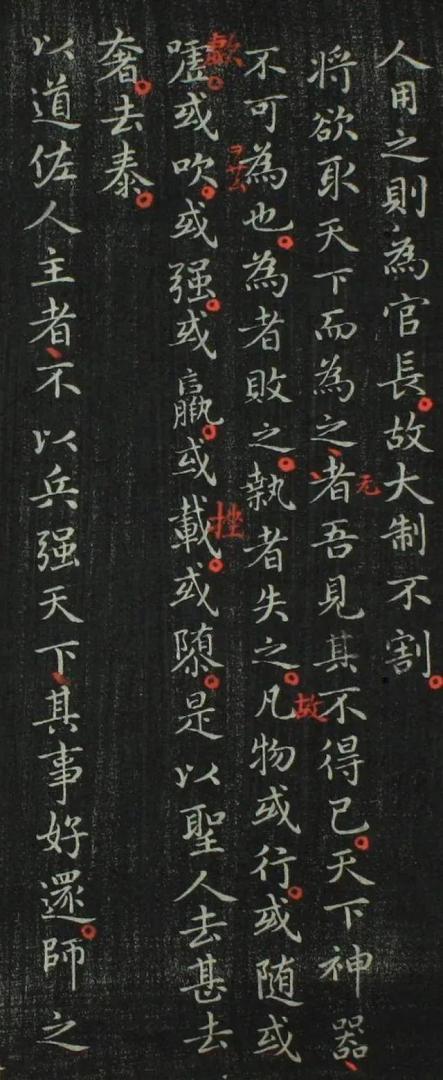 人用之則為官長。故大制不割。
将欲取天下而為之、者吾見其不得已。天下神器、
无
不可為也。為者敗之。執者失之。凡物或行。或随或
故
嘘。或吹。或强。或羸。或載。或隳。是以聖人去甚去
歔
挫
奢。去泰。
以道佐人主者、不以兵强天下、其事好還。師之